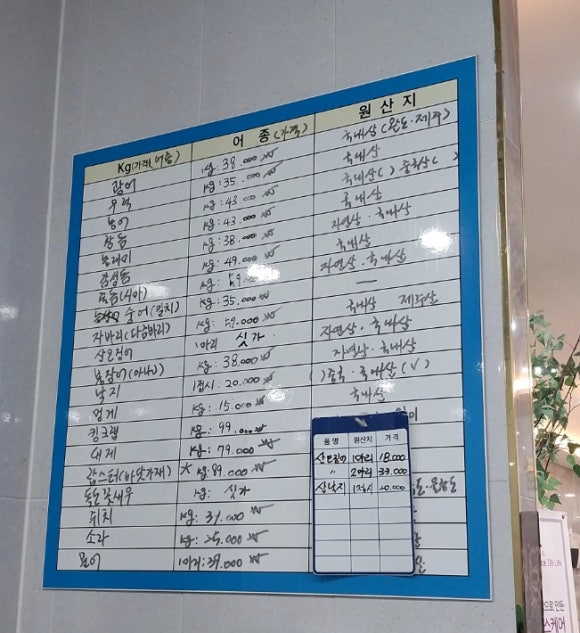 Kg(가격) 어종 어 종(가격) 원 산 지
광어 kg: 38.000 국내산(완도·제주)
우럭 kg: 35.000 국내산
농어 kg: 43.000 국내산( ) 중국산( )
참돔 kg: 43.000 국내산
놀래미 kg: 38.000 자연산·국내산
감성돔 kg: 49.000 국내산
돌돔(시아) kg: 59.000 자연산·국내산
숭어(밀치) kg: 35.000 —
자바리(다금바리) kg: 59.000 국내산 제주산
산오징어 1마리 싯가 자연산·국내산
붕장어(아나고) kg: 38.000 자연산·국내산
낙지 1접시: 20.000 ( )중국·국내산(√)
멍게 kg: 15.000 국내산
킹크랩 kg: 99.000
대게 kg: 79.000
랍스터(바닷가재) kg: 89.000
독도꽃새우 kg: 싯가
쥐치 kg: 37.000
소라 kg: 25.000
문어 1마리: 39.000
품 명 원산지 가 격
산오징어 1마리 18.000
〃 2마리 33.000
산낙지 1접시 20.000